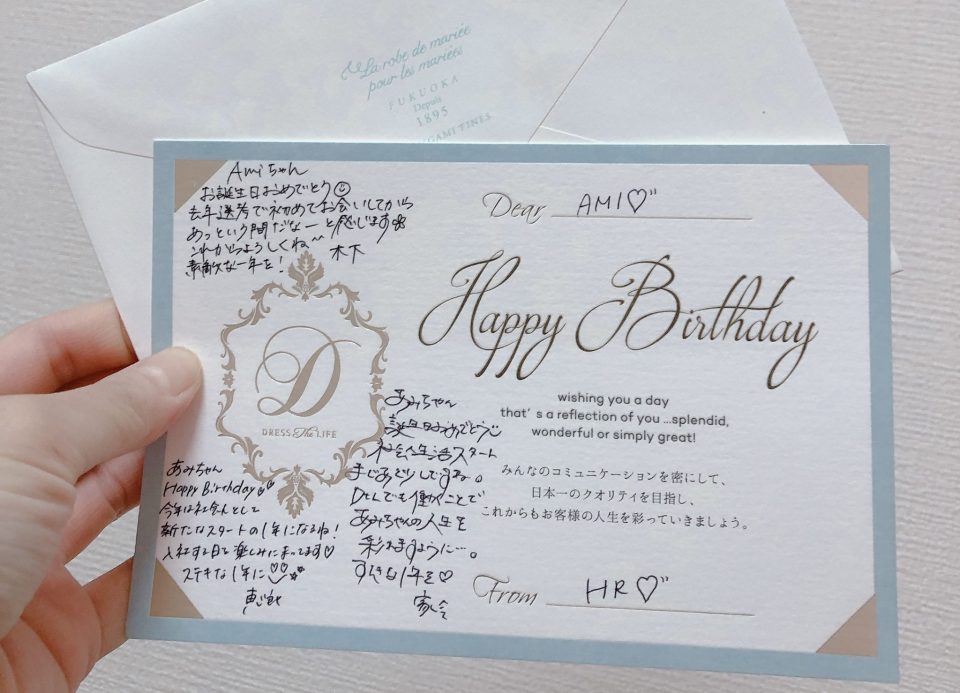 La robe de mariée
pour les mariées
FUKUOKA
Depuis
1895
Amiちゃん
お誕生日おめでとう
去年選考で初めてお会いしてから
あっという間だなーと感じます
これからよろしくね^^
素敵な一年を!
木下
Dear AMI♡"
Happy Birthday
D
DRESS The LIFE
wishing you a day
that's a reflection of you ...splendid,
wonderful or simply great!
みんなのコミュニケーションを密にして、
日本一のクオリティを目指し、
これからもお客様の人生を彩っていきましょう。
あみちゃん
Happy Birthday♡♡
今年は社会人として
新たなスタートの1年になるね!
入社する日を楽しみにまってます♡
ステキな1年に♡♡
あみちゃん
誕生日おめでとう
社会人生活スタート
まであと少しですね。
働くことで
あみちゃんの人生を
彩れますように…。
すてきな1年を♡
From HR♡"